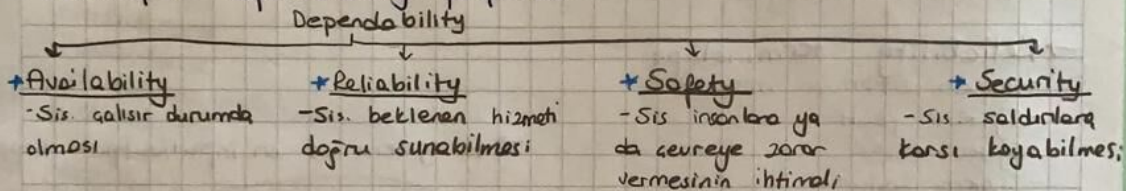 Dependability
+Availability
-Sis. çalışır durumda
olması
+Reliability
-Sis. beklenen hizmeti
doğru sunabilmesi
+Safety
-Sis insanlara ya
da çevreye zarar
vermesinin ihtimali
+Security
-Sis. saldırılara
karşı koyabilmesi